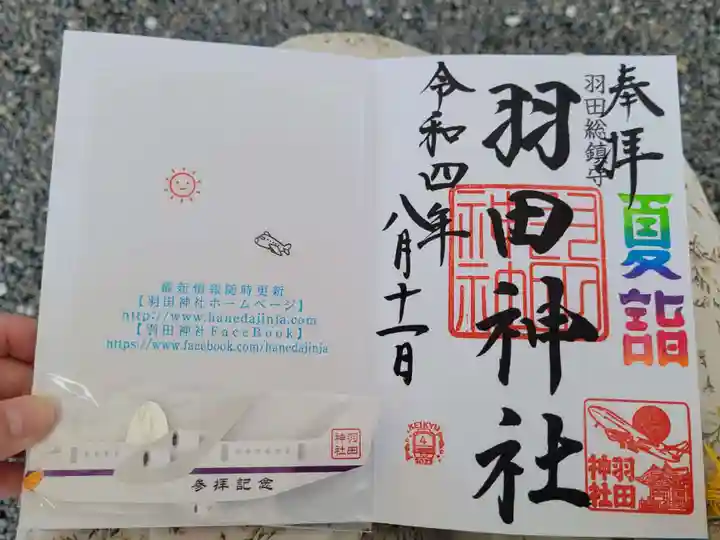 奉拝
羽田総鎮守
夏詣
羽田神社
令和四年
八月十一日
KEIKYU
4
2022
羽田
神社
最新情報随時更新
【羽田神社ホームページ】
http://www.hanedajinja.com
【羽田神社FaceBook】
https://www.facebook.com/hanedajinja
羽田
神社
参拝記念